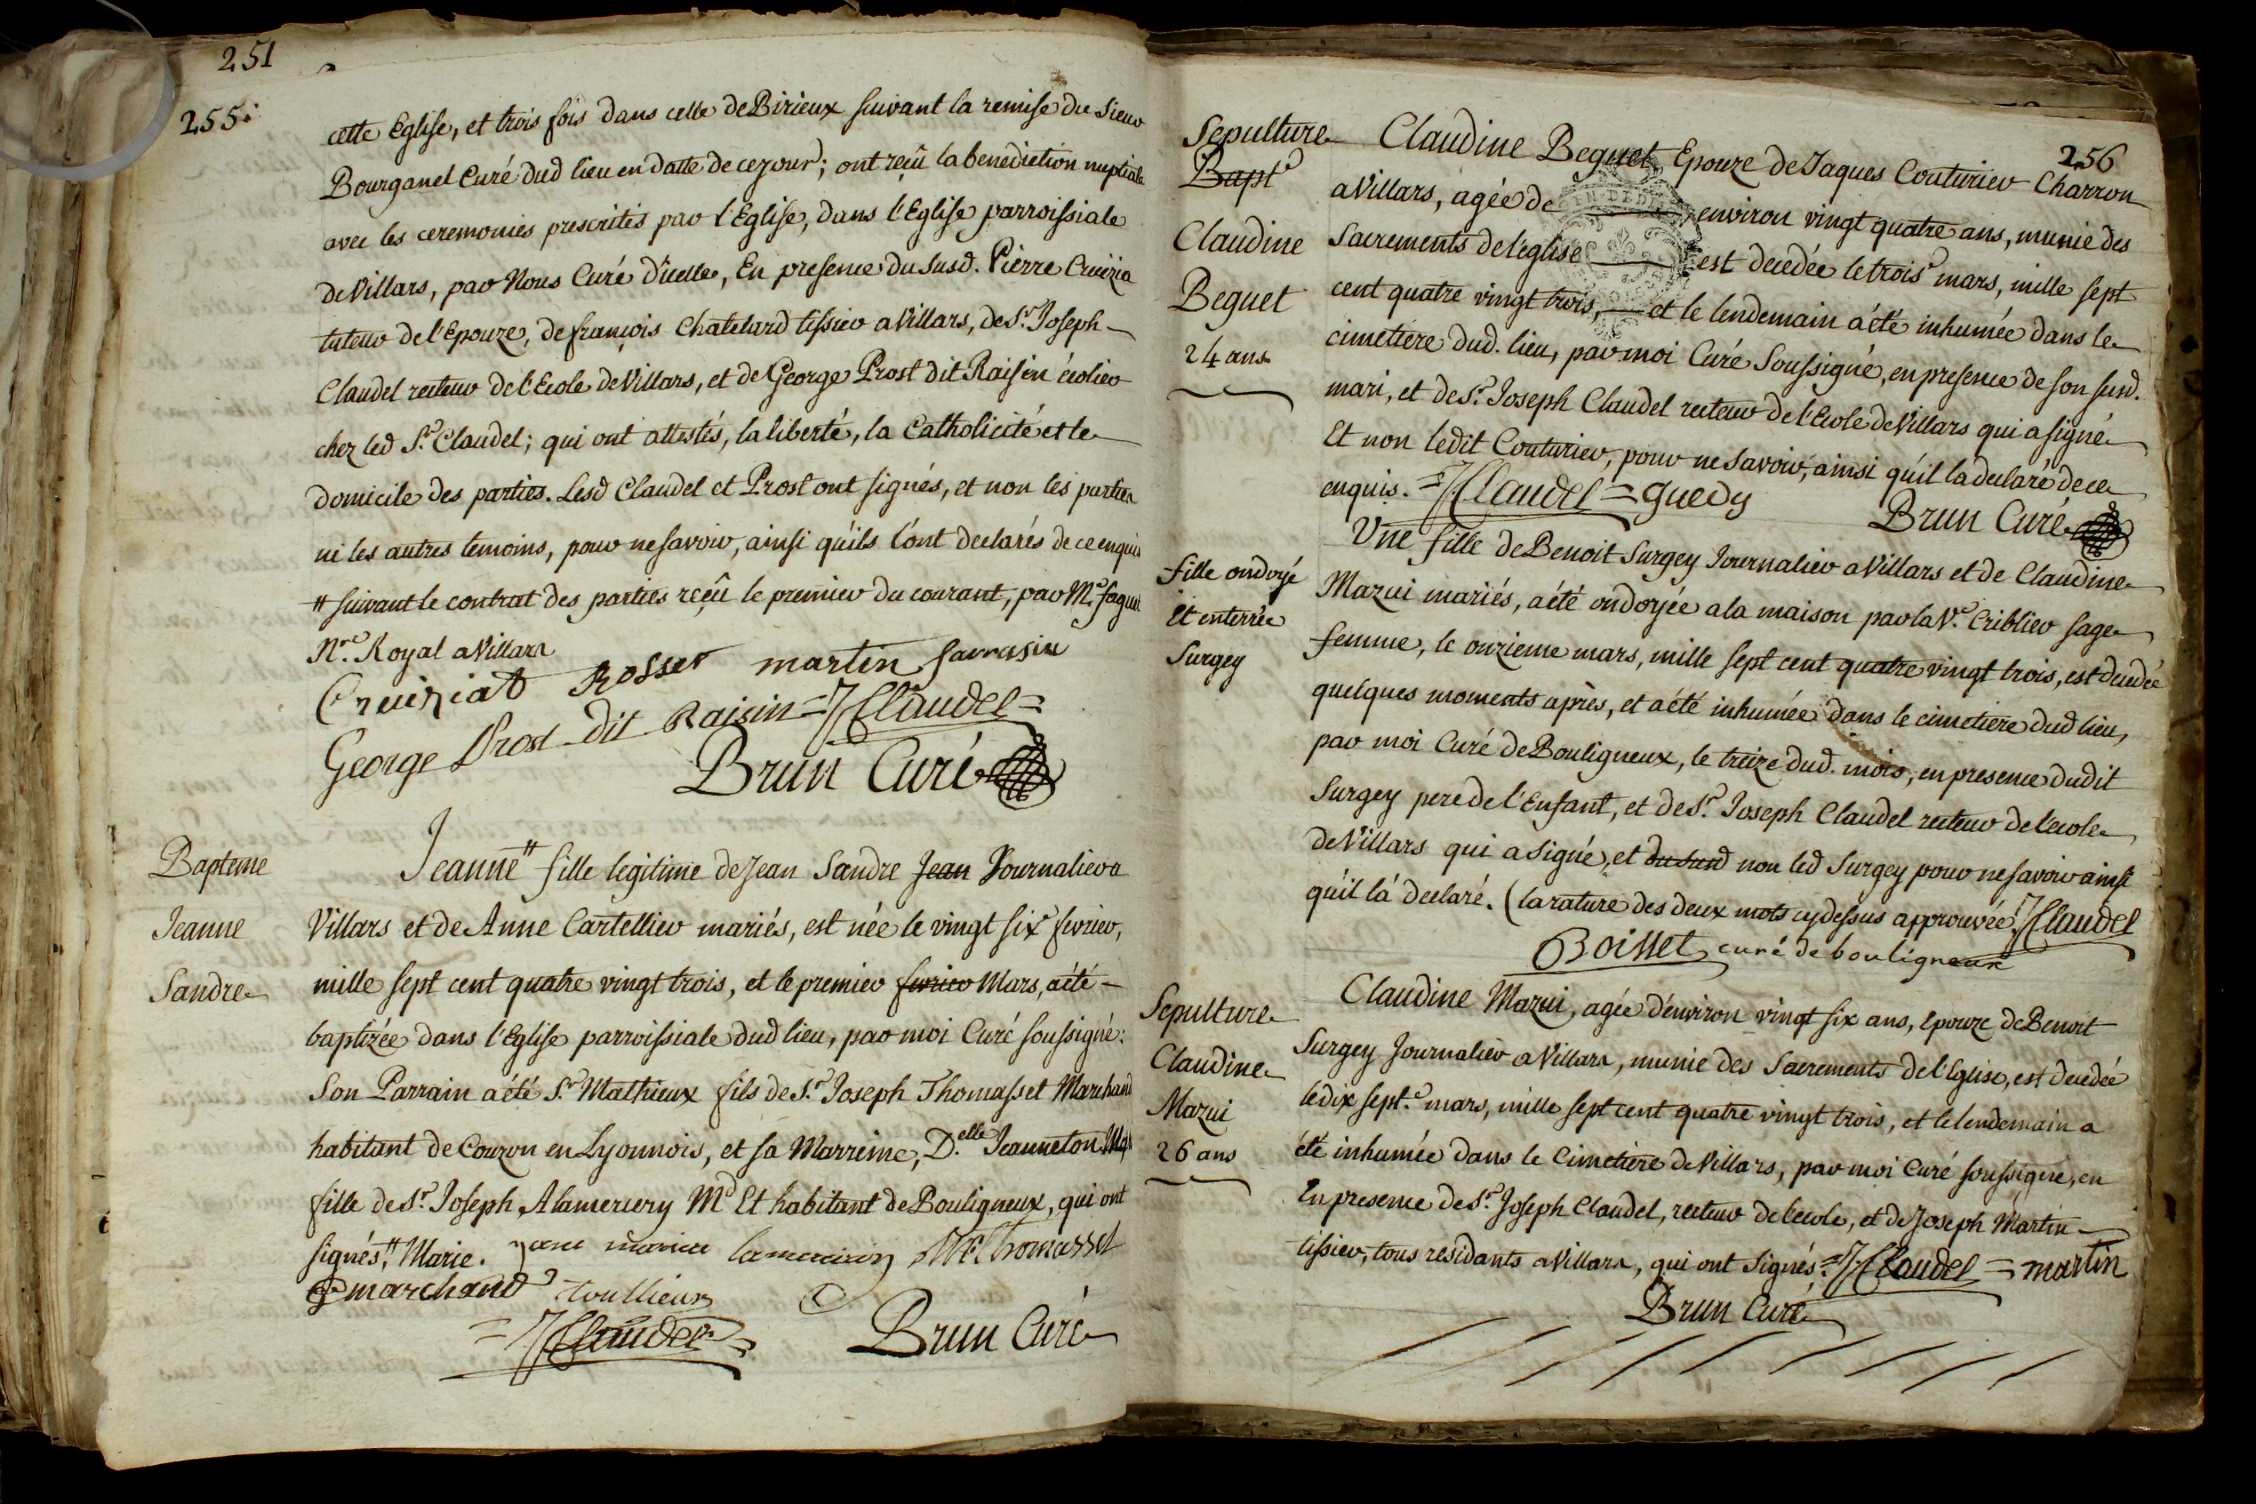 251
255.
cette Eglise, et trois fois dans celle de Birieux suivant la remise du Sieur
Bourganel Curé dud lieu en datte de ce jour; ont reçû la benediction nuptiale
avec les ceremonies prescrites par l'Eglise, dans l'Eglise parroissiale
de Villars, par Nous Curé d'icelle, En presence du susd. Pierre Cruizia
tuteur de l'Epouze, de françois Chatelard tissier a Villars, de Sr. Joseph
Claudel recteur de l'Ecole de Villars, et de George Prost dit Raisin écolier
chez led Sr. Claudel; qui ont attestés, la liberté, la Catholicité et le
domicile des parties. Lesd Claudel et Prost ont signés, et non les parties
ni les autres temoins, pour ne savoir, ainsi qu'ils l'ont declarés de ce enquis
# suivant le contrat des parties reçû le premier du courant, par Me.
Nre. Royal a Villars
Cruiziat Rosset martin sarrasin
George Prost dit Raisin = J Claudel =
Brun Curé
Bapteme
Jeanne
Sandre
Jeanne # fille legitime de Jean Sandre Jean Journalier a
Villars et de Anne Cartellier mariés, est née le vingt six fevrier,
mille sept cent quatre vingt trois, et le premier fevrier Mars, a été
baptizée dans l'Eglise parroissiale dud lieu, par moi Curé soussigné:
Son Parrain a été Sr. Mathieux fils de Sr. Joseph Thomasset Marchand
habitant de Couzon en Lyonnois, et sa Marreine, D.elle Jeanneton
fille de Sr. Joseph Alamercery Md Et habitant de Bouligneux, qui ont
signés, # Marie. M Thomasset
marchand toullieux
= J Claudel =
Brun Curé
256
Sepulture
Bapt.
Claudine
Beguet
24 ans
Claudine Beguet Epouze de Jaques Couturier Charron
a Villars, agée de environ vingt quatre ans, munie des
Sacrements de l'eglise est decedée le trois.e mars, mille sept
cent quatre vingt trois, et le lendemain a été inhumée dans le
cimetiere dud. lieu, par moi Curé Soussigné, en presence de son susd.
mari, et de Sr. Joseph Claudel recteur de l'Ecole de Villars qui a signé
Et non ledit Couturier, pour ne savoir, ainsi qu'il la declaré de ce
enquis. = J Claudel = guedy
Brun Curé
fille ondoyé
Et enterrée
Surgey
Une fille de Benoit Surgey Journalier a Villars et de Claudine
Mazui mariés, a été ondoyée a la maison par la Ve. Criblier sage
femme, le onzieme mars, mille sept cent quatre vingt trois, est decedée
quelques moments après, et a été inhumée dans le cimetiere dud lieu,
par moi Curé de Bouligneux, le treize dud. mois, en presence dudit
Surgey pere de l'Enfant, et de Sr. Joseph Claudel recteur de l'ecole
de Villars qui a signé, et du susd non led Surgey pour ne savoir ainsi
qu'il l'a declaré. (la rature des deux mots cy dessus approuvée. J Claudel
Boisset curé de bouligneux
Sepulture
Claudine
Mazui
26 ans
Claudine Mazui, agée d'environ vingt six ans, Epouze de Benoit
Surgey Journalier a Villars, munie des Sacrements de l'Eglise, est decedée
le dix sept.e mars, mille sept cent quatre vingt trois, et le lendemain a
été inhumée dans le Cimetiere de Villars, par moi Curé soussigné, en
En presence de Sr. Joseph Claudel, recteur de l'ecole, et de Joseph Martin
tissier, tous residants a Villars, qui ont signés. = J Claudel = martin
Brun Curé